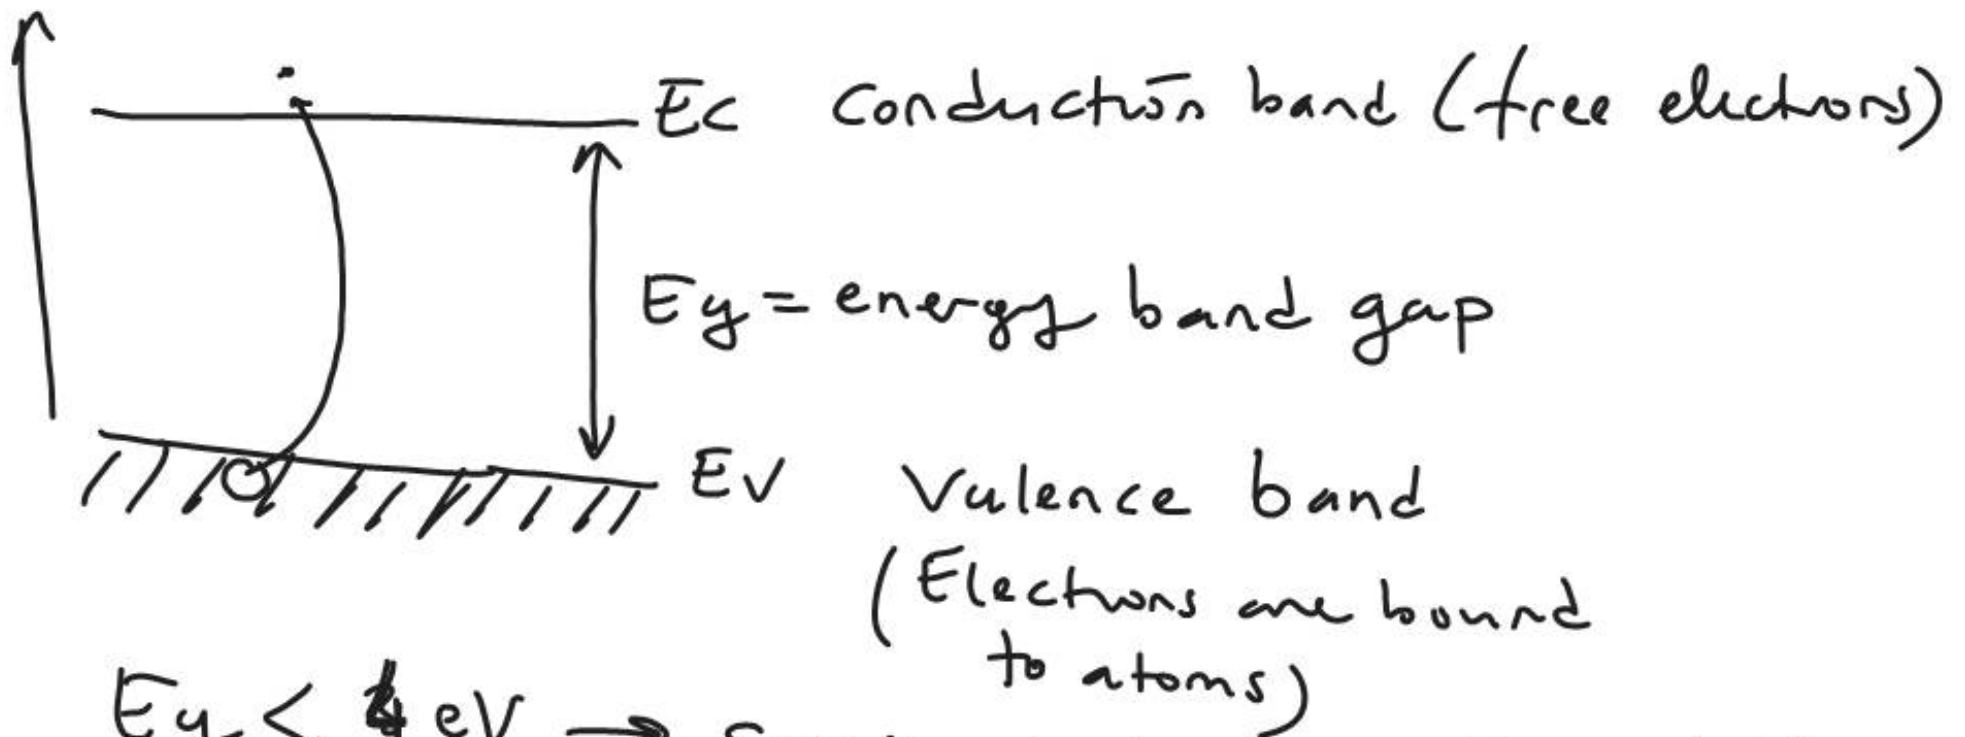 Ec Conduction band (free electrons)
Eg = energy band gap
Ev Valence band
(Electrons are bound
to atoms)
Eg < 4 eV →